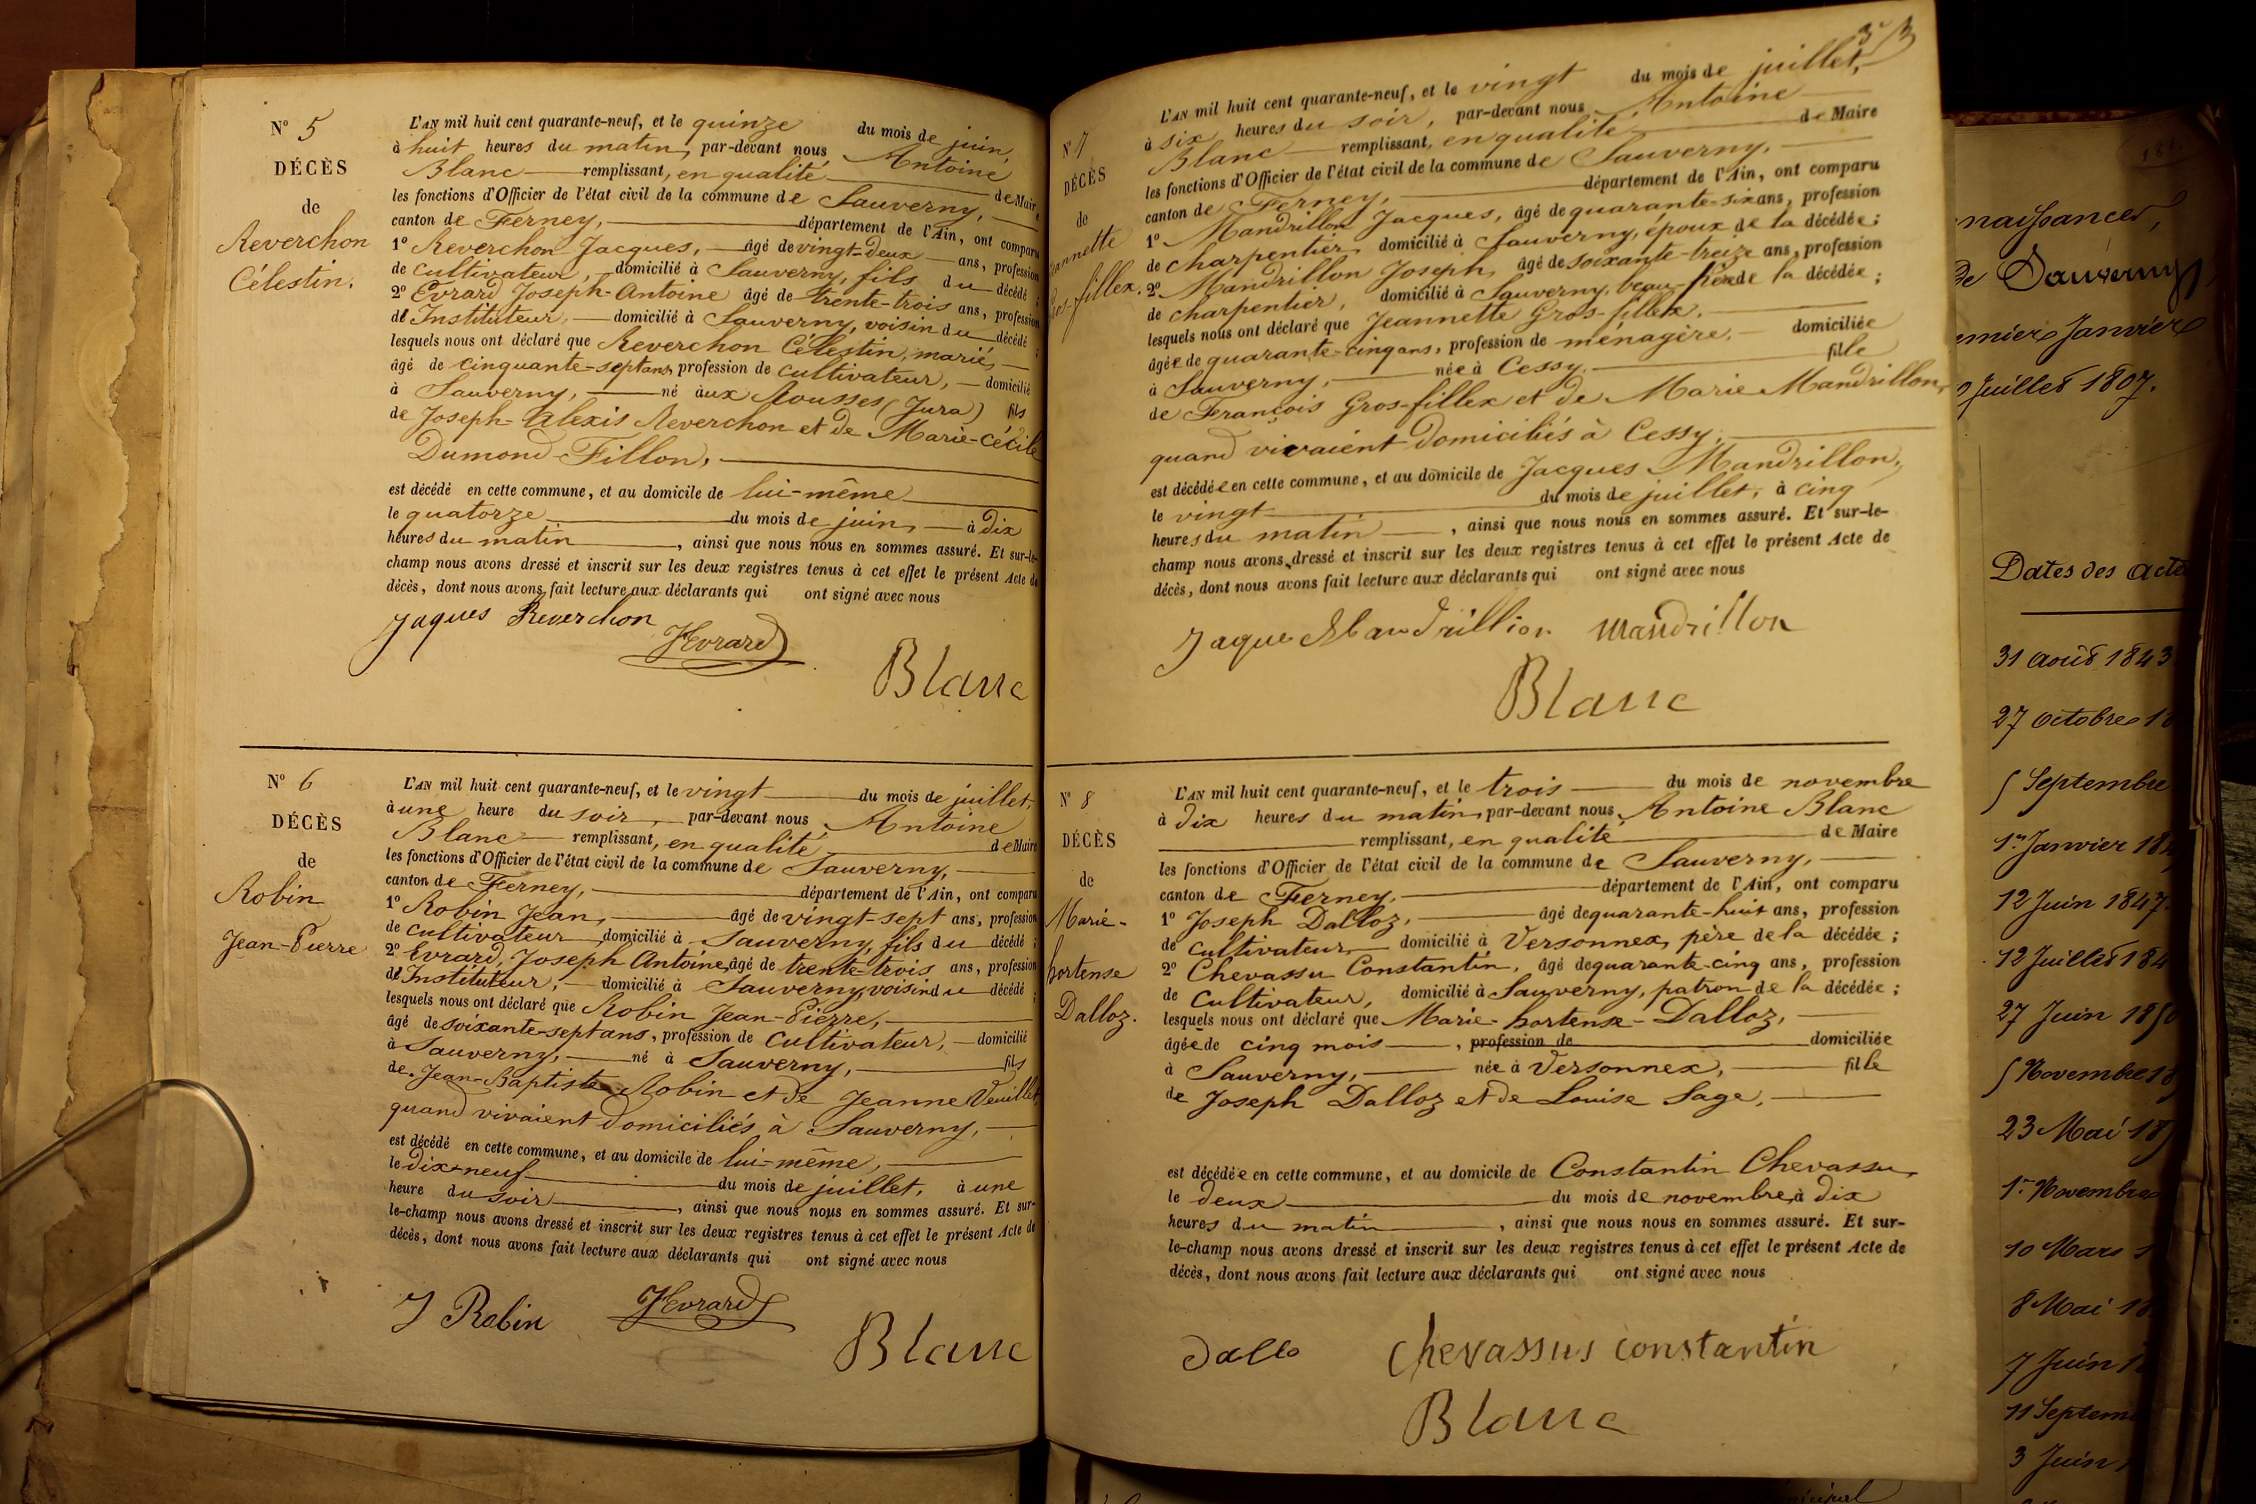 Nº 5
DÉCÈS
de
Reverchon
Célestin.
L'AN mil huit cent quarante-neuf, et le quinze du mois de juin,
à huit heures du matin, par-devant nous Antoine
Blanc remplissant, en qualité de Maire
les fonctions d'Officier de l'état civil de la commune de Sauverny,
canton de Ferney, département de l'Ain, ont comparu
1º Reverchon Jacques, âgé de vingt-deux ans, profession
de cultivateur, domicilié à Sauverny, fils du décédé ;
2º Evrard Joseph-Antoine âgé de trente-trois ans, profession
d'Instituteur, domicilié à Sauverny, voisin du décédé ;
lesquels nous ont déclaré que Reverchon Célestin, marié,
âgé de cinquante-sept ans, profession de cultivateur, domicilié
à Sauverny, né aux Rousses (Jura) fils
de Joseph-Alexis Reverchon et de Marie-Cécile
Dumond-Fillon,
est décédé en cette commune, et au domicile de lui-même
le quatorze du mois de juin, à dix
heures du matin, ainsi que nous nous en sommes assuré. Et sur-le-
champ nous avons dressé et inscrit sur les deux registres tenus à cet effet le présent Acte de
décès, dont nous avons fait lecture aux déclarants qui ont signé avec nous
Jaques Reverchon
JEvrard
Blanc
Nº 6
DÉCÈS
de
Robin
Jean-Pierre
L'AN mil huit cent quarante-neuf, et le vingt du mois de juillet,
à une heure du soir, par-devant nous Antoine
Blanc remplissant, en qualité de Maire
les fonctions d'Officier de l'état civil de la commune de Sauverny,
canton de Ferney, département de l'Ain, ont comparu
1º Robin Jean, âgé de vingt-sept ans, profession
de cultivateur domicilié à Sauverny, fils du décédé ;
2º Evrard, Joseph Antoine, âgé de trente-trois ans, profession
d'Instituteur, domicilié à Sauverny, voisin du décédé ;
lesquels nous ont déclaré que Robin Jean-Pierre,
âgé de soixante-sept ans, profession de cultivateur, domicilié
à Sauverny, né à Sauverny, fils
de Jean-Baptiste Robin et de Jeanne Veuillet,
quand vivaient domiciliés à Sauverny,
est décédé en cette commune, et au domicile de lui-même,
le dix-neuf du mois de juillet, à une
heure du soir, ainsi que nous nous en sommes assuré. Et sur-
le-champ nous avons dressé et inscrit sur les deux registres tenus à cet effet le présent Acte de
décès, dont nous avons fait lecture aux déclarants qui ont signé avec nous
J Robin
JEvrard
Blanc
Nº 7
DÉCÈS
de
Gros-fillex.
L'AN mil huit cent quarante-neuf, et le vingt du mois de juillet,
à six heures du soir, par-devant nous Antoine
Blanc remplissant, en qualité de Maire
les fonctions d'Officier de l'état civil de la commune de Sauverny,
canton de Ferney, département de l'Ain, ont comparu
1º Mandrillon Jacques, âgé de quarante-six ans, profession
de charpentier, domicilié à Sauverny, époux de la décédée ;
2º Mandrillon Joseph, âgé de soixante-treize ans, profession
de charpentier, domicilié à Sauverny, beau-père de la décédée ;
lesquels nous ont déclaré que Jeannette Gros-fillex,
âgée de quarante-cinq ans, profession de ménagère, domiciliée
à Sauverny, née à Cessy, fille
de François Gros-fillex et de Marie Mandrillon,
quand vivaient domiciliés à Cessy,
est décédée en cette commune, et au domicile de Jacques Mandrillon,
le vingt du mois de juillet, à cinq
heures du matin, ainsi que nous nous en sommes assuré. Et sur-le-
champ nous avons dressé et inscrit sur les deux registres tenus à cet effet le présent Acte de
décès, dont nous avons fait lecture aux déclarants qui ont signé avec nous
Jaque Mandrillion mandrillon
Blanc
Nº 8
DÉCÈS
de
Marie-
hortense
Dalloz.
L'AN mil huit cent quarante-neuf, et le trois du mois de novembre
à dix heures du matin, par-devant nous Antoine Blanc
remplissant, en qualité de Maire
les fonctions d'Officier de l'état civil de la commune de Sauverny,
canton de Ferney, département de l'Ain, ont comparu
1º Joseph Dalloz, âgé de quarante-huit ans, profession
de cultivateur, domicilié à Versonnex, père de la décédée ;
2º Chevassu Constantin, âgé de quarante-cinq ans, profession
de cultivateur, domicilié à Sauverny, patron de la décédée ;
lesquels nous ont déclaré que Marie-hortense-Dalloz,
âgée de cinq mois, profession de domiciliée
à Sauverny, née à Versonnex, fille
de Joseph Dalloz et de Louise Sage,
est décédée en cette commune, et au domicile de Constantin Chevassu,
le deux du mois de novembre, à dix
heures du matin, ainsi que nous nous en sommes assuré. Et sur-
le-champ nous avons dressé et inscrit sur les deux registres tenus à cet effet le présent Acte de
décès, dont nous avons fait lecture aux déclarants qui ont signé avec nous
Dallo
chevassus constantin
Blanc
naissances,
de Sauverny
Janvier
Juillet 1807.
Dates des acte
31 août 1843
27 octobre
5 Septembre
1er Janvier
12 Juin 1847
12 Juillet
27 Juin
5 Novembre
23 Mai
1er Novembre
10 Mars
8 Mai
7 Juin
11 Septem
3 Juin